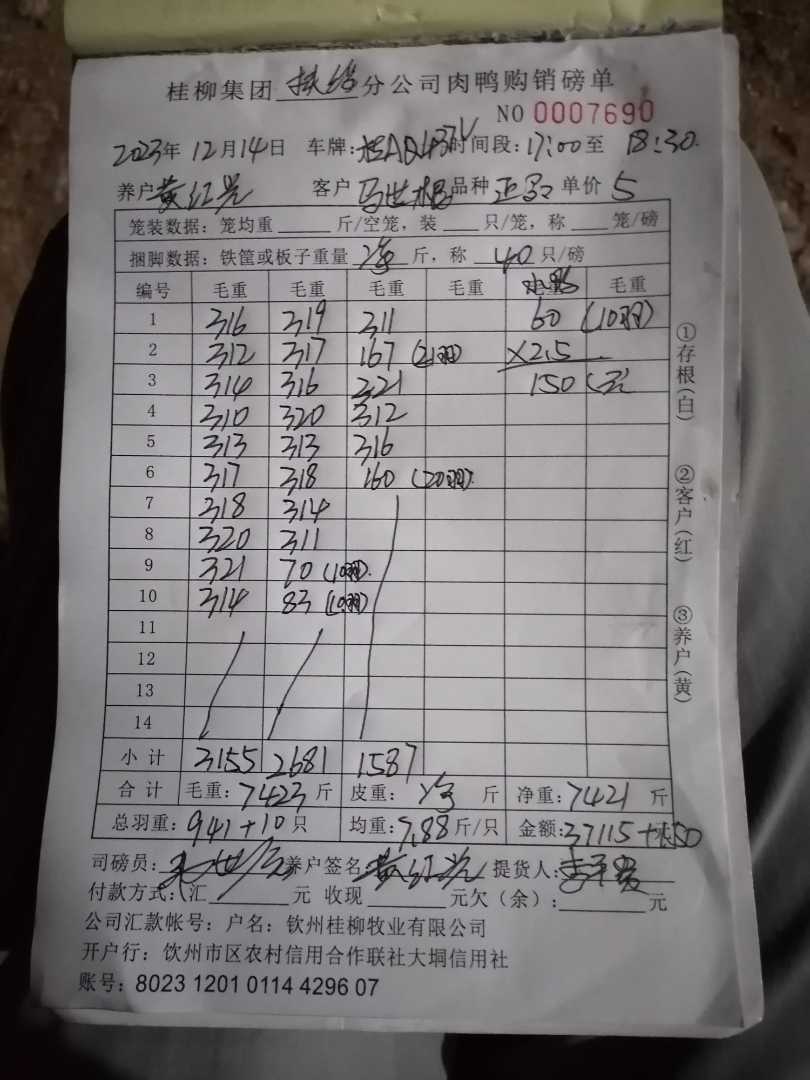 桂柳集团 扶绥 分公司肉鸭购销磅单
NO 0007690
2023年 12月14日 车牌: 时间段:17:00至 18:30
养户 黄红光 客户 马世 品种 单价 5
笼装数据:笼均重 斤/空笼,装 只/笼,称 笼/磅
捆脚数据:铁筐或板子重量 净 斤,称 40 只/磅
编号 毛重 毛重 毛重 毛重 毛重
1 316 319 311 60 (10羽)
2 312 317 167 (21羽) ×2.5
3 314 316 321 150 元
4 310 320 312
5 313 313 316
6 317 318 160 (20羽)
7 318 314
8 320 311
9 321 70 (10羽)
10 314 83 (10羽)
11
12
13
14
小计 3155 2681 1587
合计 毛重:7423斤 皮重: 净 斤 净重:7421斤
总羽重:941+10只 均重:7.88斤/只 金额:37115+150
司磅员: 养户签名:黄红光 提货人:
付款方式:(汇 元 收现 元欠(余): 元
公司汇款帐号:户名:钦州桂柳牧业有限公司
开户行:钦州市区农村信用合作联社大垌信用社
账号:8023 1201 0114 4296 07
①存根(白) ②客户(红) ③养户(黄)